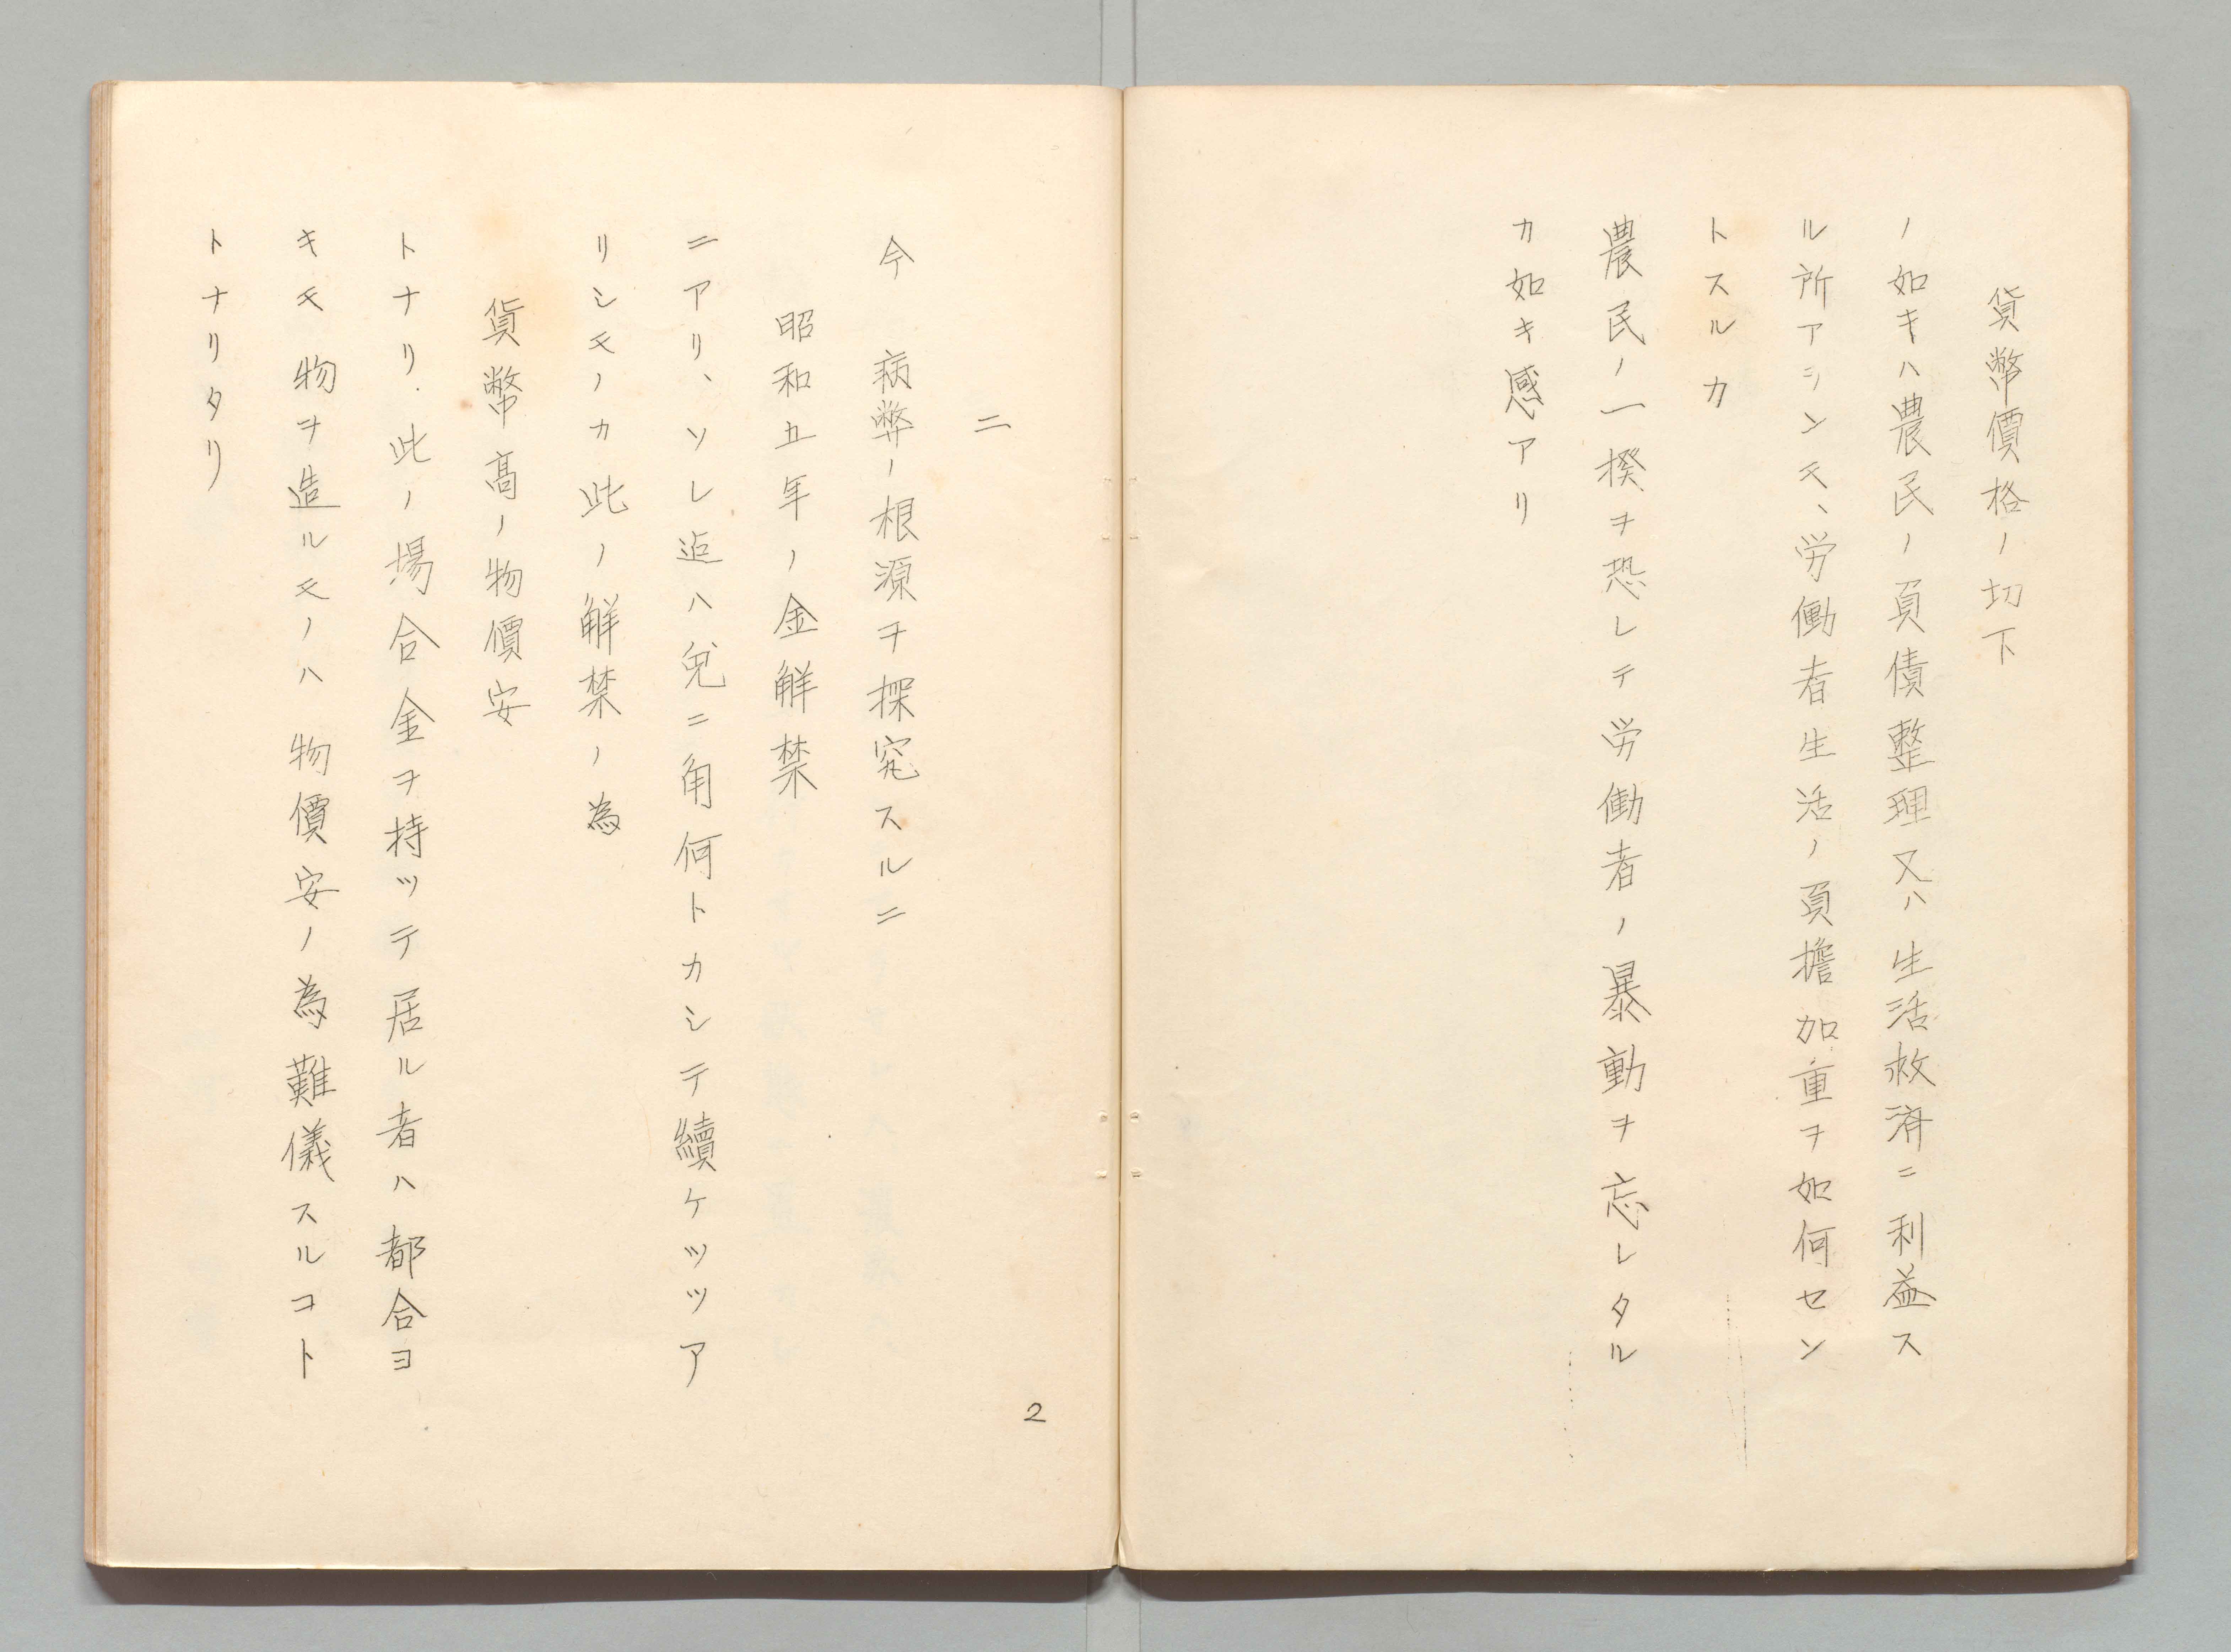 貨幣價格ノ切下
ノ如キハ農民ノ負債整理又ハ生活救済ニ利益ス
ル所アランモ、労働者生活ノ負擔加重ヲ如何セン
トスルカ
農民ノ一揆ヲ恐レテ労働者ノ暴動ヲ忘レタル
カ如キ感アリ
二
今 病弊ノ根源ヲ探究スルニ
昭和五年ノ金解禁
ニアリ、ソレ迄ハ兎ニ角何トカシテ續ケツツア
リシモノカ此ノ解禁ノ為
貨幣高ノ物價安
トナリ.此ノ場合金ヲ持ツテ居ル者ハ都合ヨ
キモ物ヲ造ルモノハ物價安ノ為難儀スルコト
トナリタリ
2